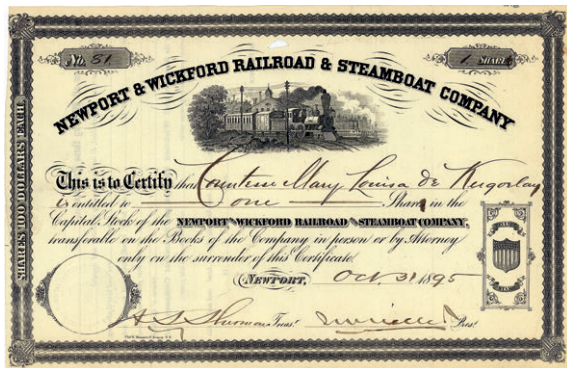 No. 81
1 SHARE
NEWPORT & WICKFORD RAILROAD & STEAMBOAT COMPANY
SHARES $100 DOLLARS EACH
This is to Certify that Countess Mary Louisa de
is entitled to one Share in the
Capital Stock of the NEWPORT AND WICKFORD RAILROAD AND STEAMBOAT COMPANY,
transferable on the Books of the Company in person or by Attorney
only on the surrender of this Certificate.
NEWPORT, Oct. 31 1895
A S Sherman Treas. Pres.